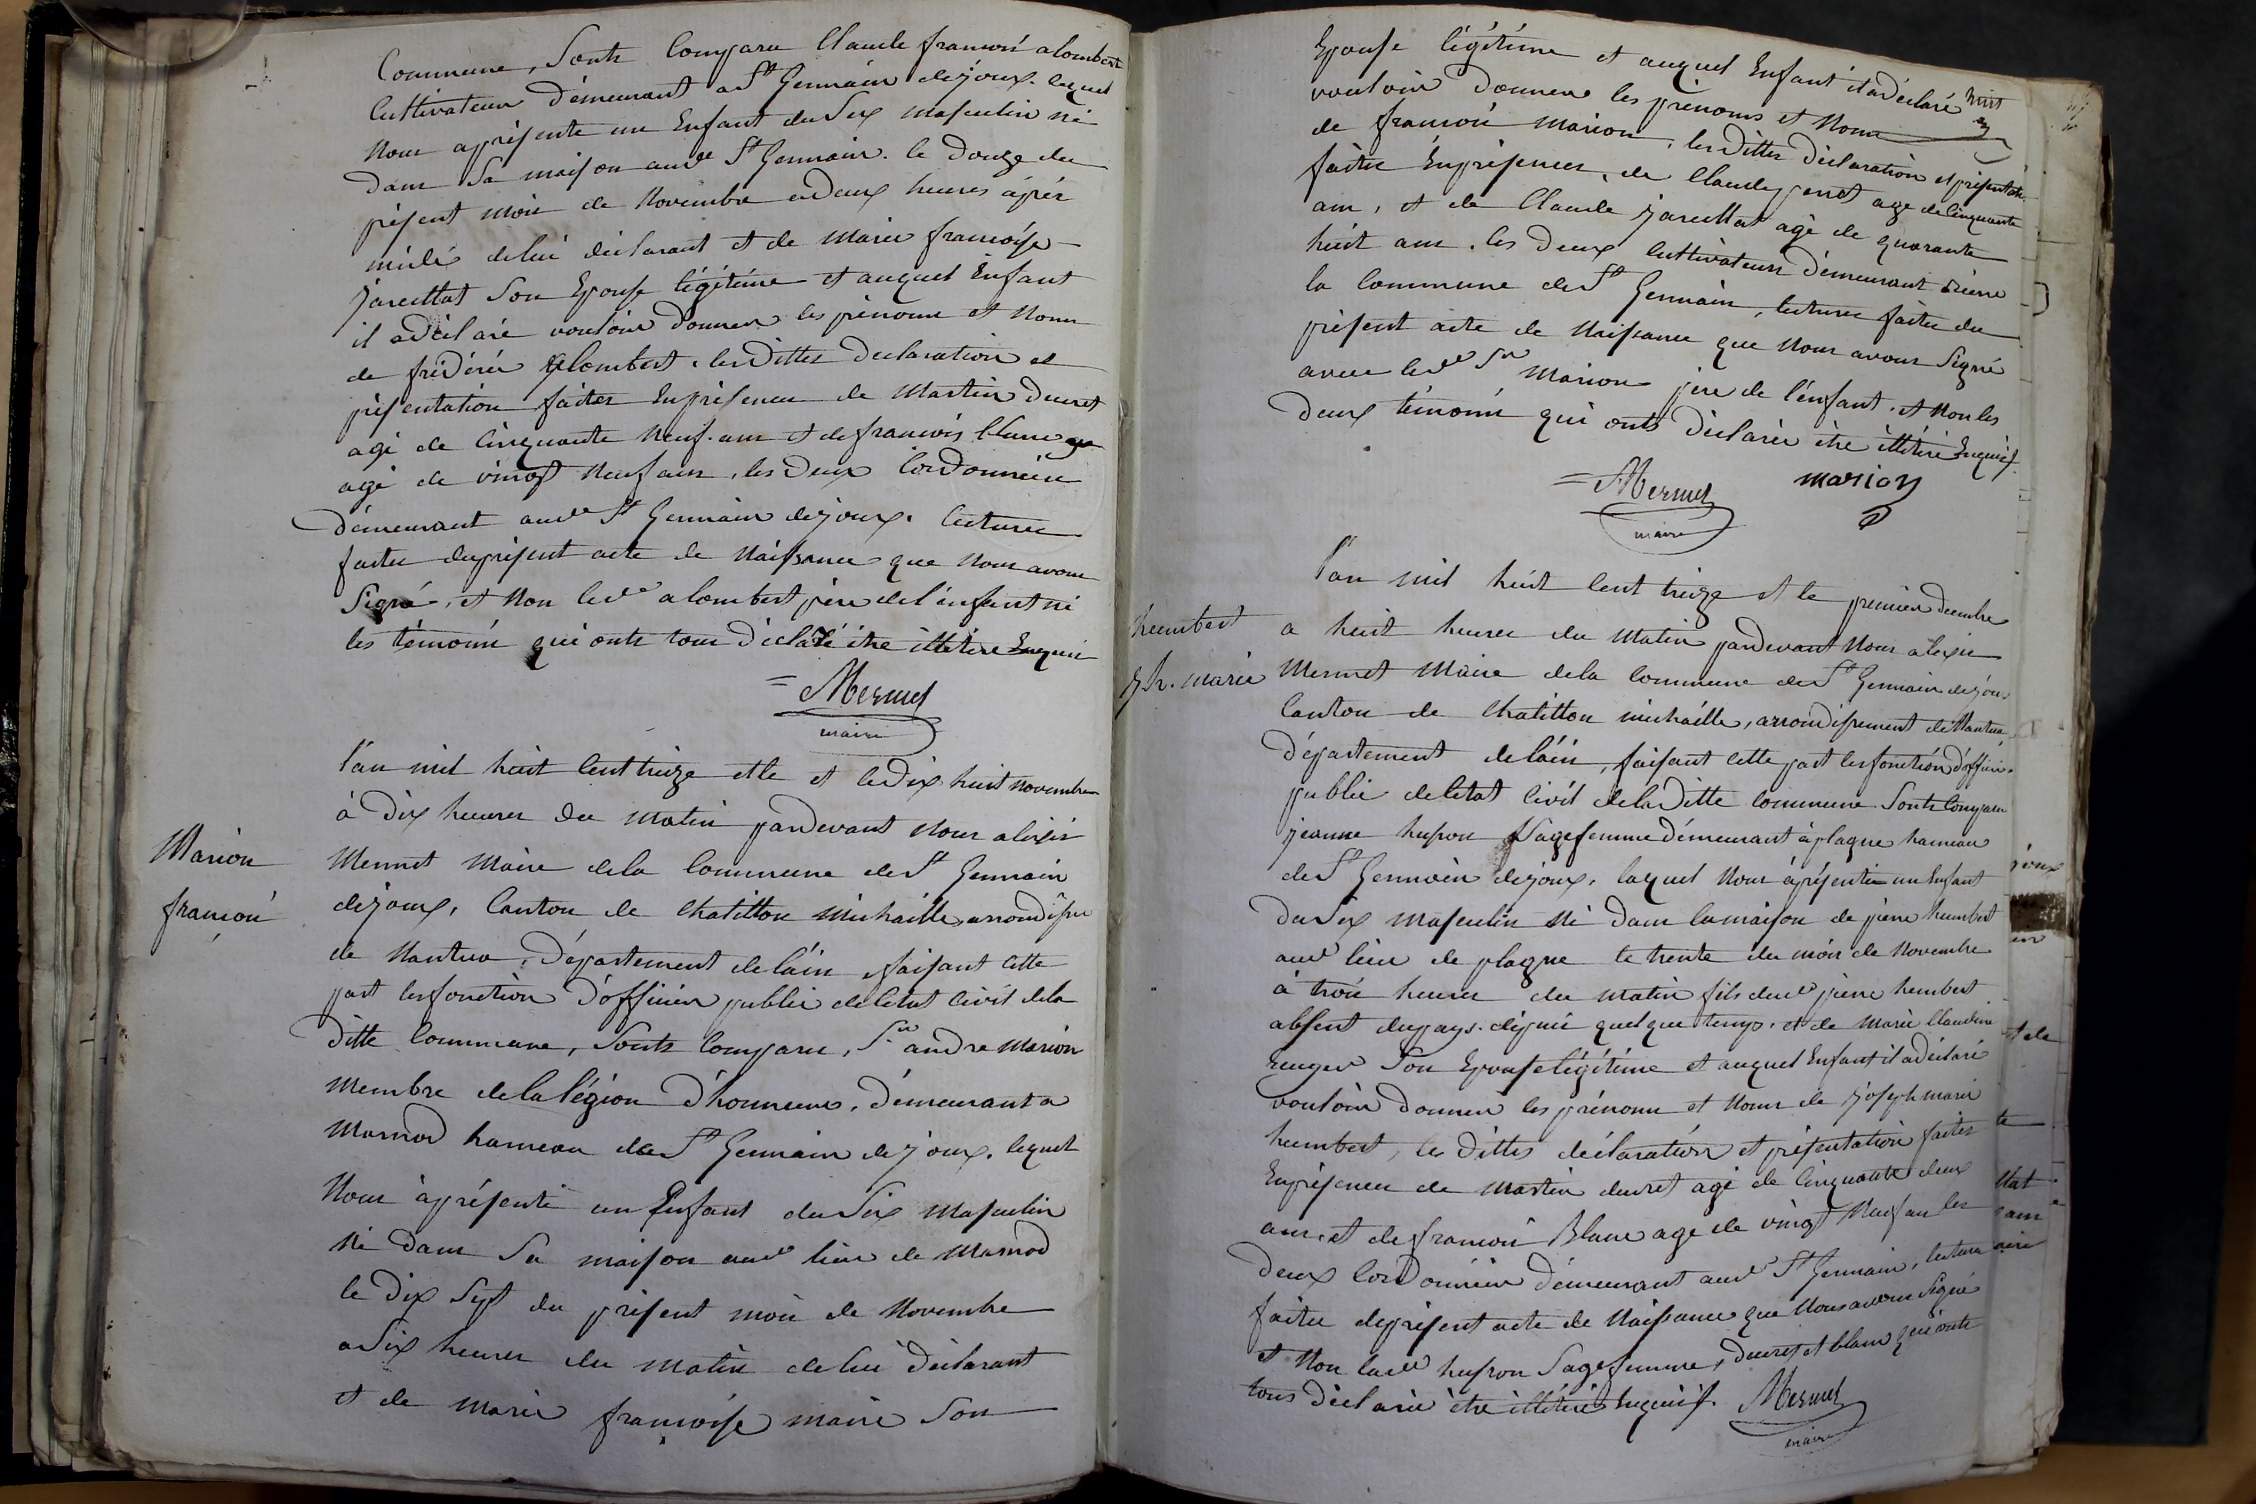 Commune, Sonts Comparu Claude francois alombert
Cultivateur démeurant a St Germain dejoux. lequel
Nous apreséntte un Enfant du Sex masculin né
dans Sa maison aud St Germain. le douze du
présent mois de Novembre adeux heures áprés
midi delui déclarant et de Marie francoise
jareillat Son Epouse légitime et auquel Enfant
il adéclaré vouloir donner les prénoms et Nom
de fréderic alombert. lesdittes declaration et
présentation faites Enprésence de Martin ducret
agé de Cinquante Neuf ans et de francois blanc
agé de vingt Neuf ans, les deux Cordonniér
démeurant aud St Germain dejoux. lecture
faite duprésent acte de Naissance que Nous avons
Signé, et Non led alombert pére del'énfant ni
les témoins qui onts tous déclaré étre illétéré Enquis
=Mermet
maire
l'an mil huit Cent treize etle et ledix huit novembre
à Dix heures du matin pardevant Nous aléxis
Marion
Mermet Maire dela Commune de St Germain
francois
dejoux, Canton de Chatillon Michaille, arrondisse
de Nantua, Département deláin, faisant Cette
part les fonction d'officier public deletat Civil dela
ditte Commune, Sonts Comparu, Sr andre Marion
Membre dela légion d'honneur, démeurant a
Marnod hameau de St Germain dejoux. lequel
Nous àprésenté un Enfant du Sex Masculin
Né dans Sa maison aud lieu de Marnod
le dix Sept du présent mois de Novembre
aSix heures du matin delui déclarant
et de Marie francoise maire Son
Epouse légitime et auquel Enfant il adéclaré
vouloir donner les prénoms et Nom
de francois Marion, lesdittes déclaration et présentation
faites Enprésence, de Claude perrot agé de Cinquante huit
ans, et de Claude jareillat agé de quarante
huit ans. les deux Cultivateurs démeurant rière
la Commune de St Germain, lecture faite du
présent acte de Naissance que Nous avons Signé
avec led Sr Marion pére de l'énfant. et Non les
deux témoins qui onts déclaré étre illétéré Enquis
=Mermet marion
maire
l'an mil huit Cent treize et le premier decembre
humbert
a huit heures du Matin pardevant Nous alexis
jh. marie
Mermet Maire dela Commune de St Germain dejoux
Canton de Chatillon michaille, arrondissement de Nantua,
département delain, faisant Cette part les fonction d'officier
public deletat Civil deladitte Commune Sonts Comparu
jeanne husson Sagefemme démeurant à plagne hameau
de St Germain dejoux, laquel Nous áprésentée un Enfant
du Sex Masculin Né dans lamaison de pierre humbert
aud lieu de plagne le trente du mois de Novembre
à trois heures du matin fils dud pierre humbert
absent dupays. dépuis quelque temps. et de Marie Claudine
Son Epouse légitime et auquel Enfant il adéclaré
vouloir donner les prénoms et Nom de joseph marie
humbert, les dittes déclaration et présentation faites
Enprésence de Martin ducret agé de Cinquante deux
ans, et de francois Blanc agé de vingt Neuf ans les
deux Cordonniér démeurant aud St Germain, lecture
faite duprésent acte de Naissance que Nous avons Signé
et Non lad husson Sagefemme, ducret et blanc qui onts
tous déclaré étre illétéré Enquis. Mermet
maire